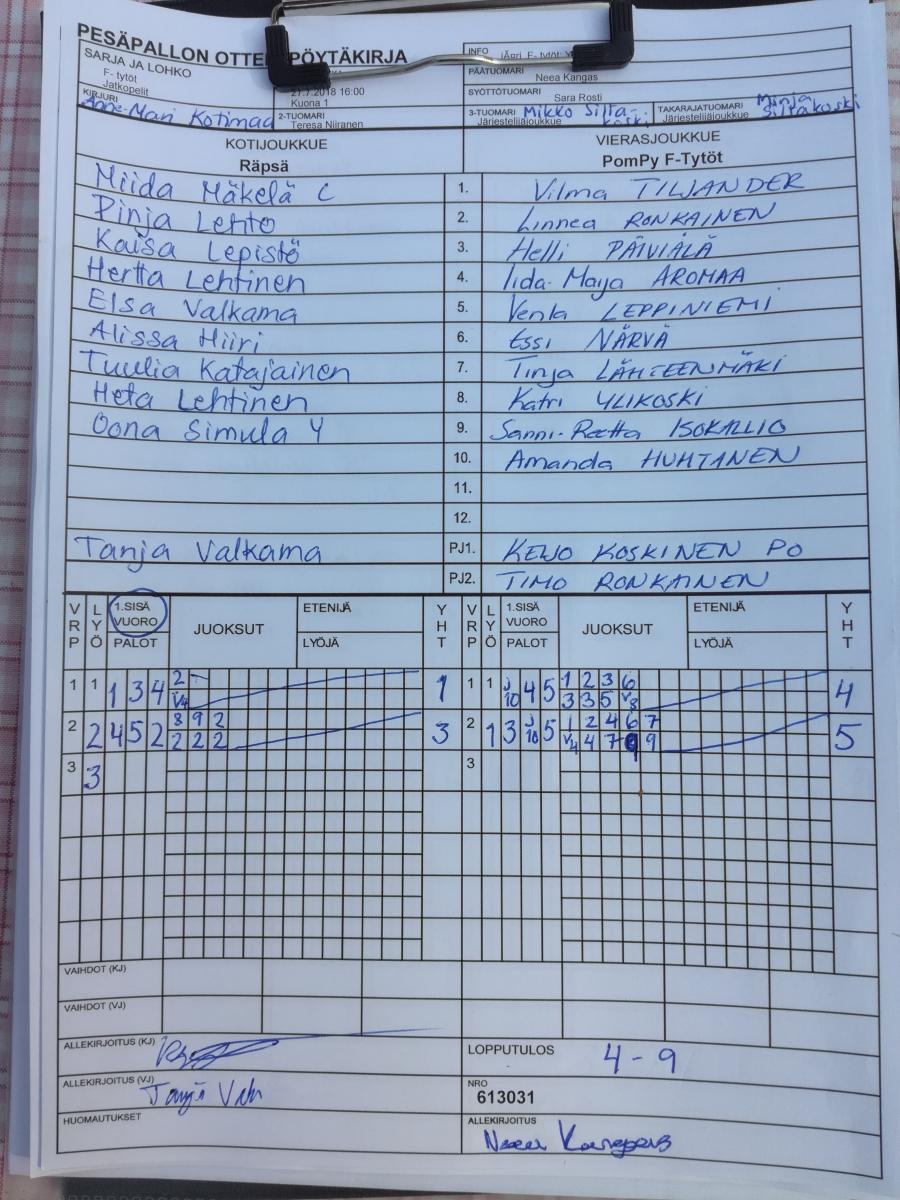 PESÄPALLON OTTE PÖYTÄKIRJA
SARJA JA LOHKO
F- tytöt
Jatkopelit
27.7.2018 16:00
Kuona 1
INFO
PÄÄTUOMARI
Neea Kangas
SYÖTTÖTUOMARI
Sara Rosti
KIRJURI
Anne-Mari Kotimaa
2-TUOMARI
Teresa Niiranen
3-TUOMARI Mikko Silta-
Järjestelijäjoukkue koski
TAKARAJATUOMARI Minja
Järjestelijäjoukkue Siltakoski
KOTIJOUKKUE
Räpsä
VIERASJOUKKUE
PomPy F-Tytöt
Miida Mäkelä C 1. Vilma TILJANDER
Pinja Lehto 2. Linnea RONKAINEN
Kaisa Lepistö 3. Helli PÄIVIÄLÄ
Hertta Lehtinen 4. Iida-Maija AROMAA
Elsa Valkama 5. Venla LEPPINIEMI
Alissa Hiiri 6. Essi NÄRVÄ
Tuulia Katajainen 7. Tinja LÄHTEENMÄKI
Heta Lehtinen 8. Katri YLIKOSKI
Oona Simula Y 9. Sanni-Reetta ISOKALLIO
10. Amanda HUHTANEN
11.
12.
Tanja Valkama PJ1. KEIJO KOSKINEN PO
PJ2. TIMO RONKAINEN
VRP LYÖ 1.SISÄ VUORO PALOT JUOKSUT ETENIJÄ LYÖJÄ YHT VRP LYÖ 1.SISÄ VUORO PALOT JUOKSUT ETENIJÄ LYÖJÄ YHT
1 1 1 3 4 2 V4 1 1 1 J10 4 5 1 2 3 6 3 3 5 V8 4
2 2 4 5 2 8 9 2 2 2 2 3 2 1 3 J10 5 1 2 4 6 7 V4 4 7 9 9 5
3 3 3
VAIHDOT (KJ)
VAIHDOT (VJ)
ALLEKIRJOITUS (KJ)
LOPPUTULOS 4-9
ALLEKIRJOITUS (VJ)
NRO
613031
HUOMAUTUKSET
ALLEKIRJOITUS